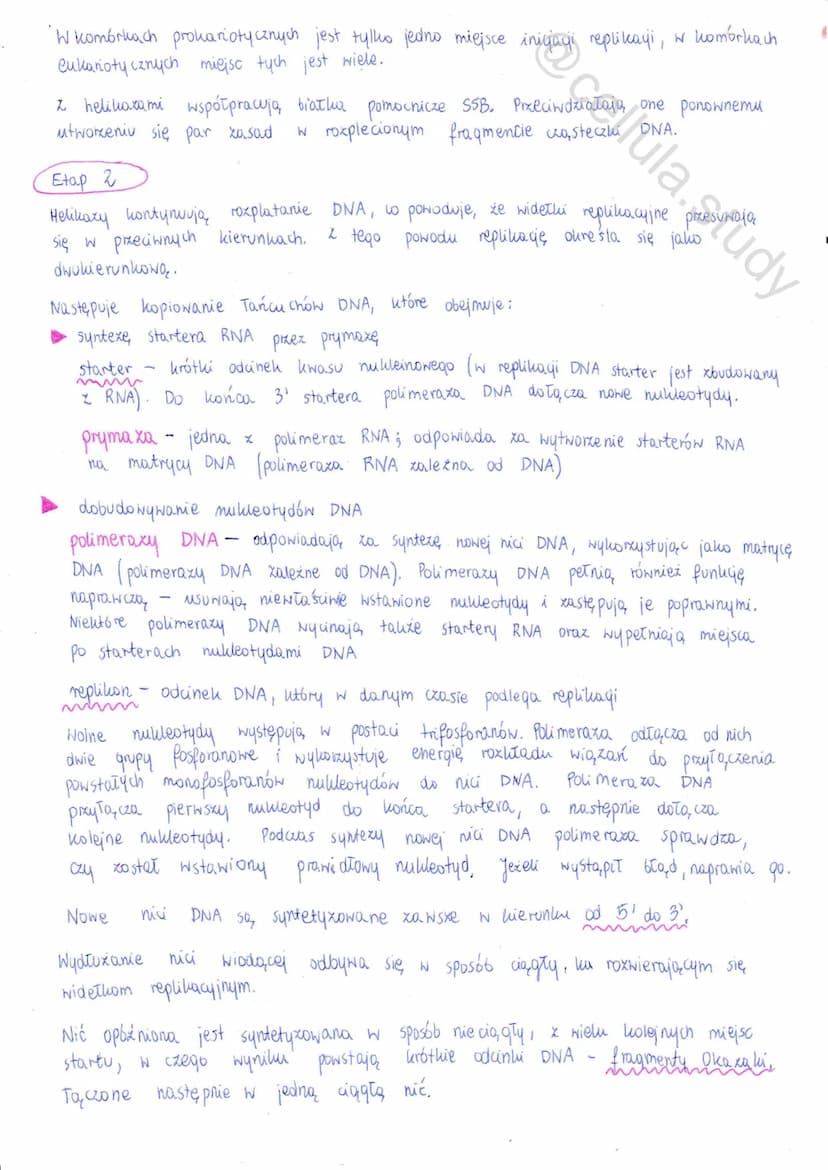 W komórkach prokariotycznych jest tylko jedno miejsce inicjacji replikacji, w komórkach
eukariotycznych miejsc tych jest wiele.
Z helikazami współpracują białka pomocnicze SSB. Przeciwdziałają one ponownemu
utworzeniu się par zasad w rozplecionym fragmencie cząsteczki DNA.
Etap 2
Helikazy kontynuują rozplatanie DNA, co powoduje, że widełki replikacyjne przesuwają
się w przeciwnych kierunkach. Z tego powodu replikację określa się jako
dwukierunkową.
Następuje kopiowanie łańcuchów DNA, które obejmuje:
syntezę startera RNA przez prymazę
starter – krótki odcinek kwasu nukleinowego (w replikacji DNA starter jest zbudowany
z RNA). Do końca 3' startera polimeraza DNA dołącza nowe nukleotydy.
prymaza – jedna z polimeraz RNA; odpowiada za wytworzenie starterów RNA
na matrycy DNA (polimeraza RNA zależna od DNA)
dobudowywanie nukleotydów DNA
polimerazy DNA – odpowiadają za syntezę nowej nici DNA, wykorzystując jako matrycę
DNA (polimerazy DNA zależne od DNA). Polimerazy DNA pełnią również funkcję
naprawczą – usuwają niewłaściwie wstawione nukleotydy i zastępują je poprawnymi.
Niektóre polimerazy DNA wycinają także startery RNA oraz wypełniają miejsca
po starterach nukleotydami DNA
replikon – odcinek DNA, który w danym czasie podlega replikacji
Wolne nukleotydy występują w postaci trifosforanów. Polimeraza odłącza od nich
dwie grupy fosforanowe i wykorzystuje energię rozkładu wiązań do przyłączenia
powstałych monofosforanów nukleotydów do nici DNA. Polimeraza DNA
przyłącza pierwszy nukleotyd do końca startera, a następnie dołącza
kolejne nukleotydy. Podczas syntezy nowej nici DNA polimeraza sprawdza,
czy został wstawiony prawidłowy nukleotyd. Jeżeli wystąpił błąd, naprawia go.
Nowe nici DNA są syntetyzowane zawsze w kierunku od 5' do 3'.
Wydłużanie nici wiodącej odbywa się w sposób ciągły, ku rozwierającym się
widełkom replikacyjnym.
Nić opóźniona jest syntetyzowana w sposób nieciągły, z wielu kolejnych miejsc
startu, w czego wyniku powstają krótkie odcinki DNA – fragmenty Okazaki,
łączone następnie w jedną ciągłą nić.
@cellula.study